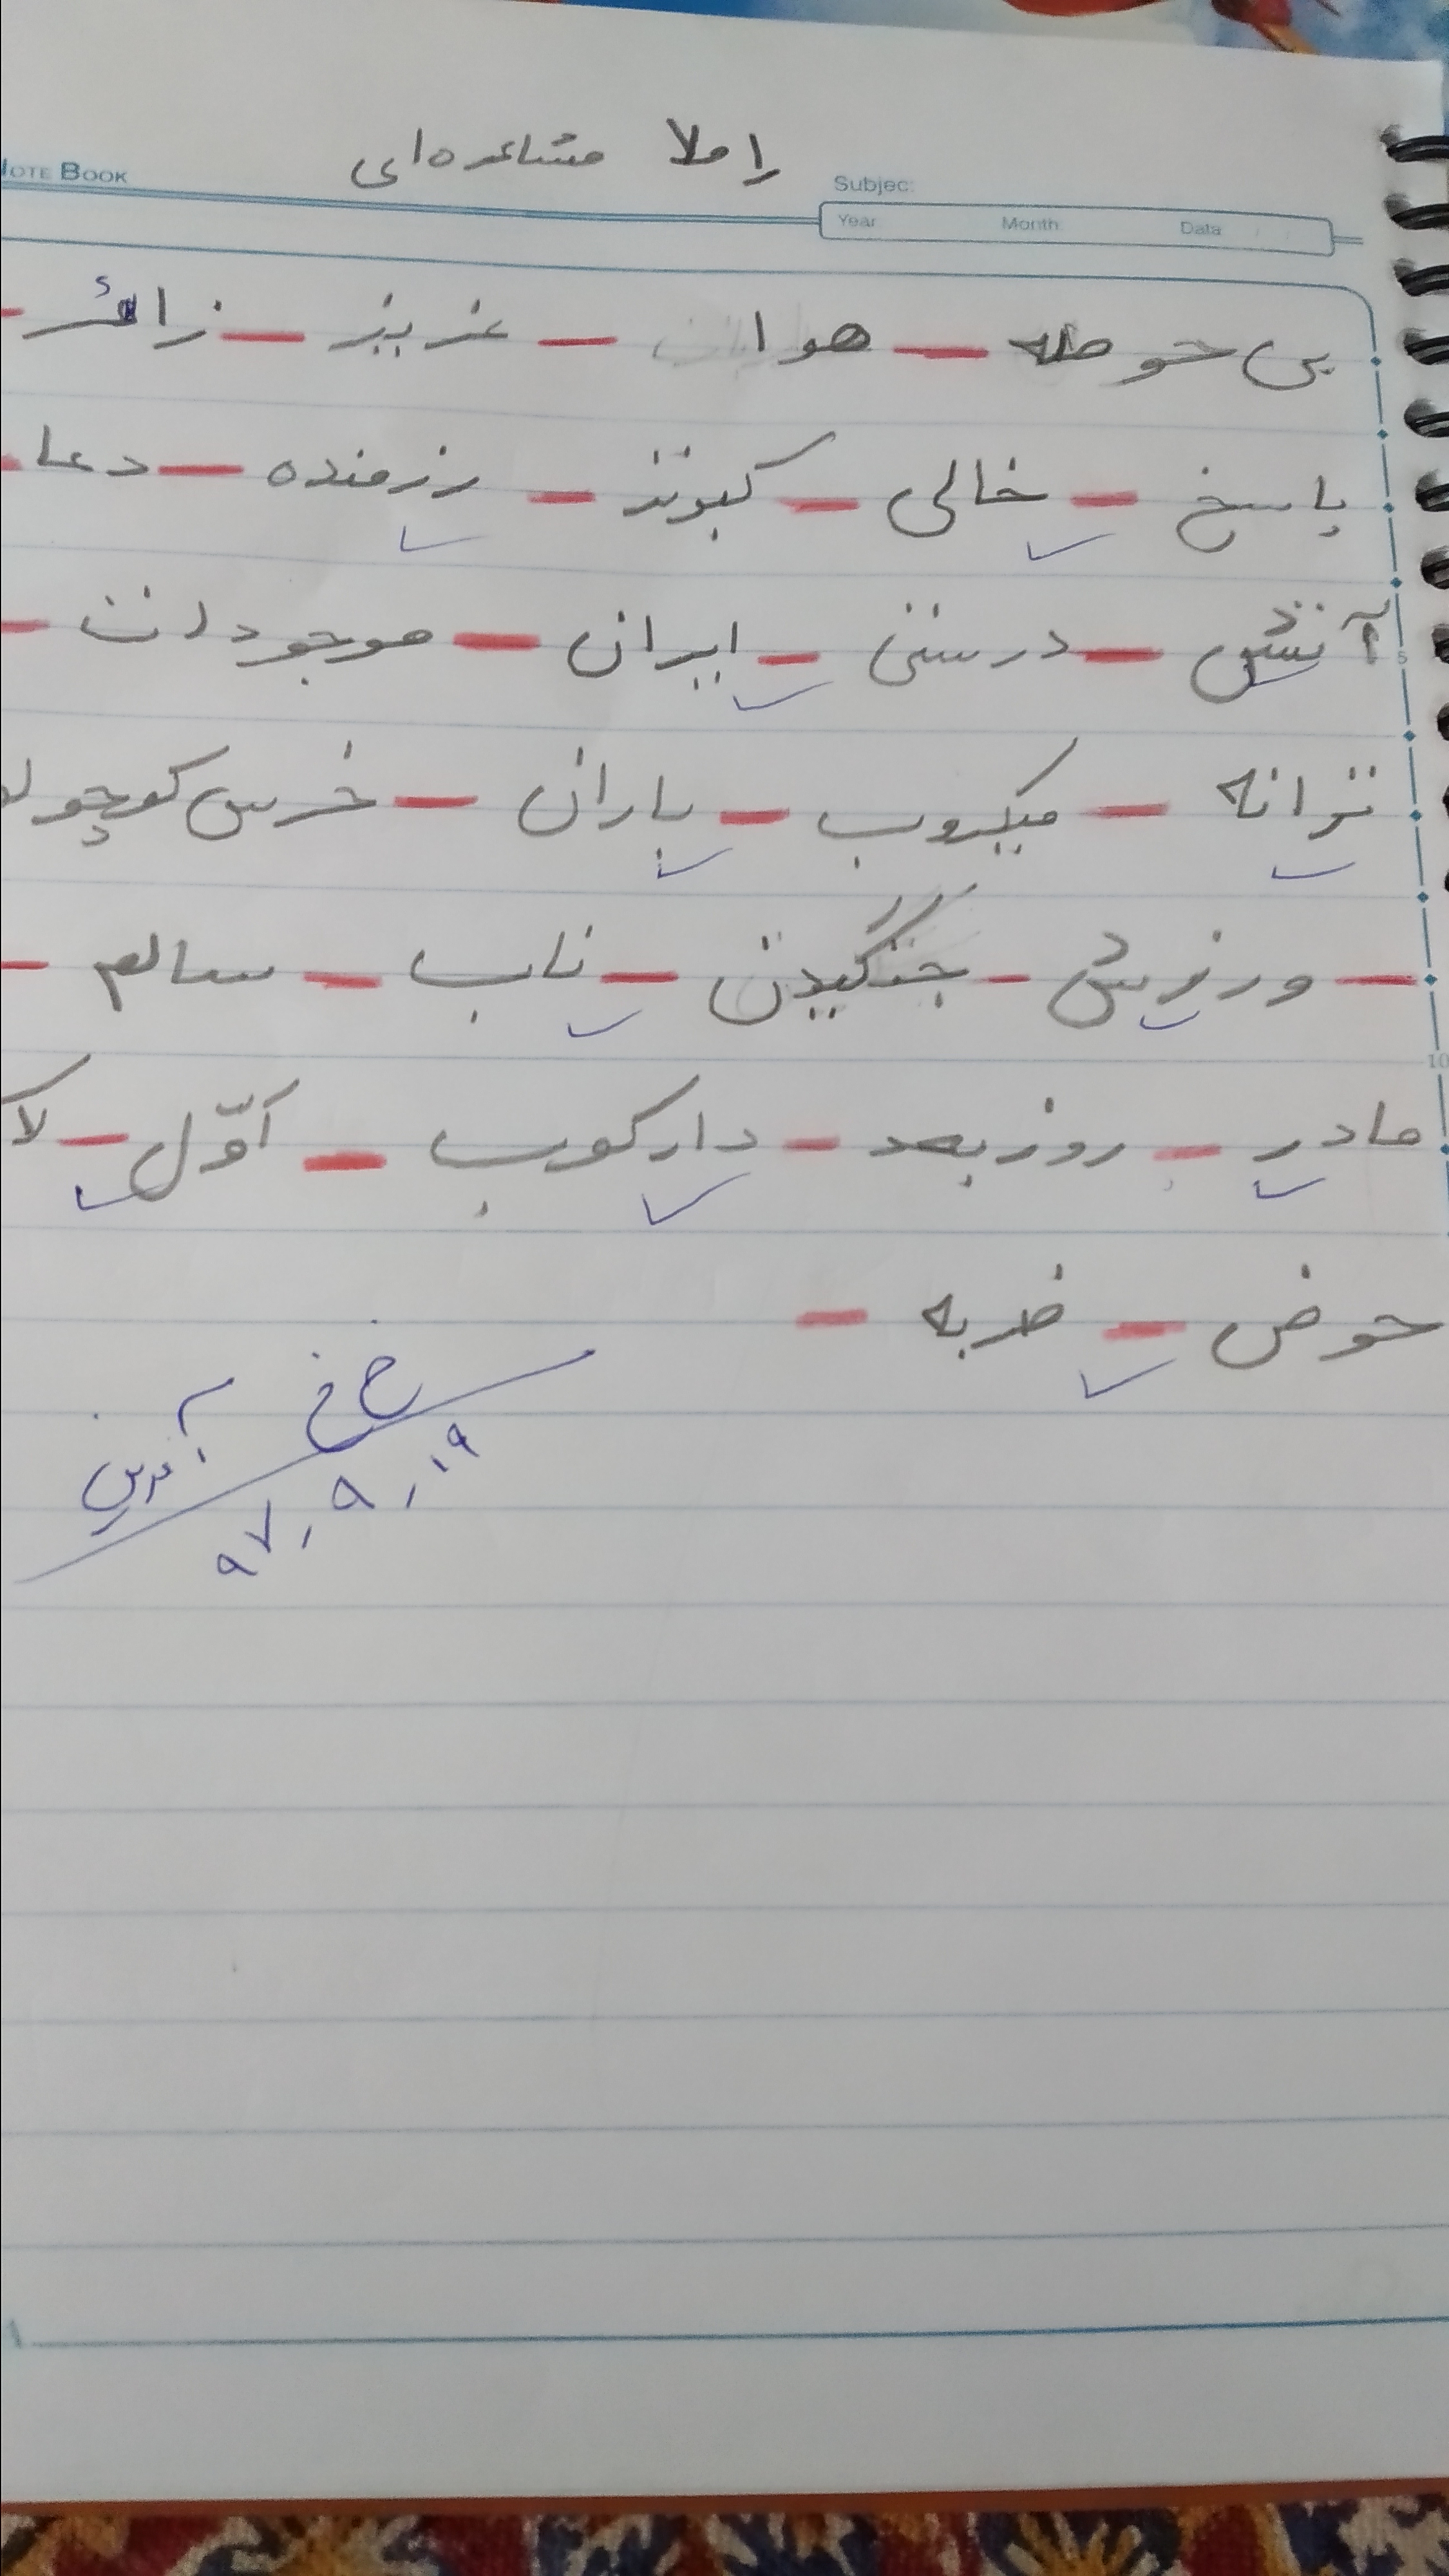 املا مشاعره‌ای
NOTE BOOK
Subjec:
Year Month Data
بی حوصله — هوا — عزیز — زائر —
پاسخ — خالی — کبوتر — رزمنده — دعا —
آتش — درستی — ایران — موجودات —
5
ترانه — میکروب — باران — خرس کوچولو
— ورزش — جنگیدن — ناب — سالم —
10
مادر — روز بعد — دارکوب — اوّل —
حوض — ضربه —
آفرین
۹۷٫۹٫۱۹